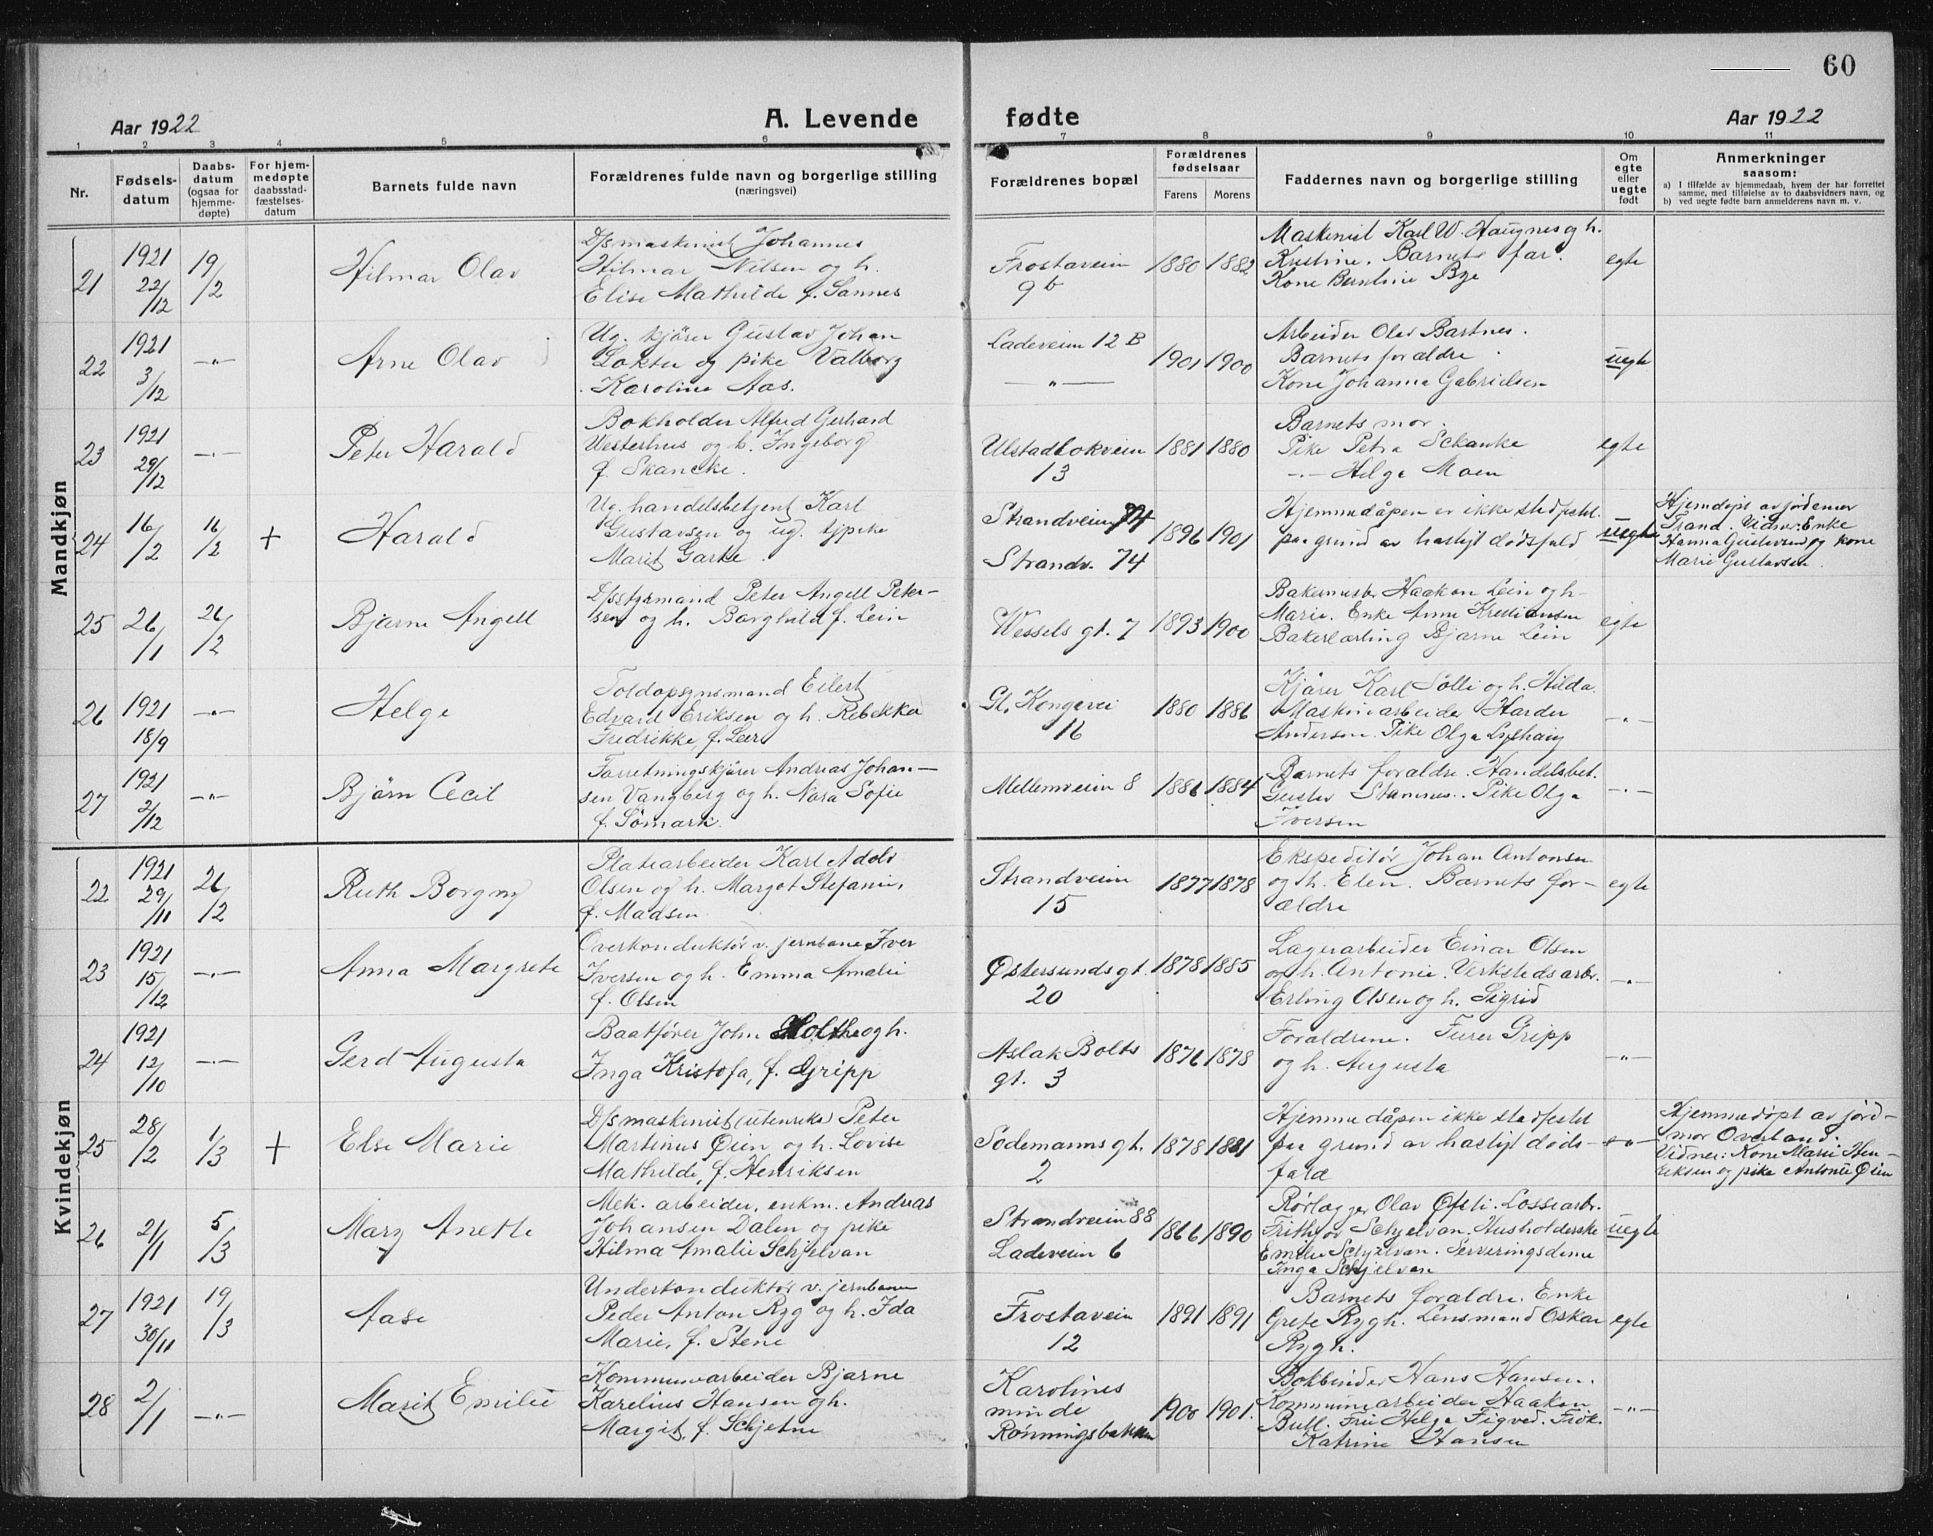 60
Aar 1922
A. Levende
fødte
Aar 1922
1 2 3 4 5 6 7 8 9 10 11
Nr.
Fødsels-
datum
Daabs-
datum
(ogsaa for
hjemme-
døpte)
For hjem-
medøpte
daabsstad-
fæstelses-
datum
Barnets fulde navn
Forældrenes fulde navn og borgerlige stilling
(næringsvei)
Forældrenes bopæl
Forældrenes
fødselsaar
Farens Morens
Faddernes navn og borgerlige stilling
Om
egte
eller
uegte
født
Anmerkninger
saasom:
a) I tilfælde av hjemmedaab, hvem der har forrettet
samme, med tilføielse av to daabsvidners navn, og
b) ved uegte fødte barn anmelderens navn m. v.
Mandkjøn
21
1921
22/12
19/2
Hilmar Olav
D/s maskinist Johannes
Hilmar Nilsen og h.
Elise Mathilde f. Sannes
Frostaveien
9b
1880 1882
Maskinist Karl W. Haugnes og h.
Kristine. Barnets far.
Kone Berntine Bye
egte
22
1921
3/12
-"-
Arne Olav
Ug. kjører Gustav Johan
Lokter og pike Valborg
Karoline Aas.
Ladeveien 12 B
-"-
1901 1900
Arbeider Olav Bartnes.
Barnets forældre
Kone Johanna Gabrielsen
uegte
23
1921
29/12
-"-
Peter Harald
Bokholder Alfred Gerhard
Westerhus og h. Ingeborg
f. Skancke.
Ulstadløkveien
13
1881 1880
Barnets mor.
Pike Petra Schanke
-"- Helga Moen
egte
24
16/2
16/2
+
Harald
Ug. handelsbetjent Karl
Gustavsen og ug. tjpike
Marit Garke.
Strandveien 74
Strandv. 74
1896 1901
Hjemmedåpen er ikke stadfestet
paa grund av hastigt dødsfald
uegte
Hjemdøpt av jordmor
Trand. Vidner: Enke
Hanna Gustavsen og kone
Marie Gustavsen.
25
26/1
26/2
Bjarne Angell
D/sstyrmand Peter Angell Peter-
sen og h. Borghild f. Lein
Wessels gt. 7
1893 1900
Bakermester Haakon Lein og h.
Marie. Enke Anne Kristiansen
Bakerlærling Bjarne Lein
egte
26
1921
18/9
-"-
Helge
Toldopsynsmand Eilert
Edvard Eriksen og h. Rebekka
Fredrikke, f. Leer
Gl. Kongevei
16
1880 1886
Kjører Karl Solli og h. Hilda.
Maskinarbeider Harder
Andersen. Pike Olga Lyshaug
-"-
27
1921
2/12
-"-
Bjørn Cecil
Forretningskjører Andreas Johan-
sen Vangberg og h. Nora Sofie
f. Sømark.
Mellemveien 8
1886 1884
Barnets forældre. Handelsbet.
Gustav Stamnes. Pike Olga
Iversen
-"-
Kvindekjøn
22
1921
29/11
26/2
Ruth Borgny
Platearbeider Karl Adolf
Olsen og h. Margot Stefanie,
f. Madsen
Strandveien
15
1877 1878
Ekspeditør Johan Antonsen
og h. Elen. Barnets for-
ældre
egte
23
1921
15/12
-"-
Anna Margrete
Overkonduktør v. jernbane Iver
Iversen og h. Emma Amalie
f. Olsen
Østersunds gt.
20
1878 1885
Lagerarbeider Einar Olsen
og h. Antonie. Verkstedsarb.
Erling Olsen og h. Sigrid
-"-
24
1921
12/10
-"-
Gerd Augusta
Baatfører John Holthe og h.
Inga Kristofa, f. Gripp
Aslak Bolts
gt. 3
1876 1878
Forældrene. Furer Gripp
og h. Augusta
-"-
25
28/2
1/3
+
Else Marie
D/s maskinist (utenriks) Peter
Martinus Øien og h. Lovise
Mathilde, f. Henriksen
Sodemanns gt.
2
1878 1881
Hjemmedåpen ikke stadfestet
paa grund av hastigt døds-
fald
-"-
Hjemmedøpt av jord-
mor Overland.
Vidner: Kone Marie Hen-
riksen og pike Antonie Øien
26
21/1
5/3
Mary Anette
Mek. arbeider, enkm. Andreas
Johansen Dalen og pike
Hilma Amalie Schjelvan
Strandveien 88
Ladeveien 6
1866 1890
Rørlægger Olav Øfsti. Lossearb.
Frithjov Schjelvan. Husholderske
Emilie Schjelvan. Serveringsdame
Inga Schjelvan
uegte
27
1921
30/11
19/3
Aase
Underkonduktør v. jernbanen
Peder Anton Ryg og h. Ida
Marie, f. Stene
Frostaveien
12
1891 1891
Barnets forældre. Enke
Grete Rygh. Lensmand Oskar
Rygh.
egte
28
2/1
-"-
Marit Emilie
Kommunearbeider Bjarne
Karelius Hansen og h.
Margit, f. Schjetne
Karolines
minde
Rønningsbakken
1900 1901.
Bokbinder Hans Hansen.
Kommunearbeider Haakon
Bull. Fru Helga Figved. Frøk.
Katrine Hansen
-"-